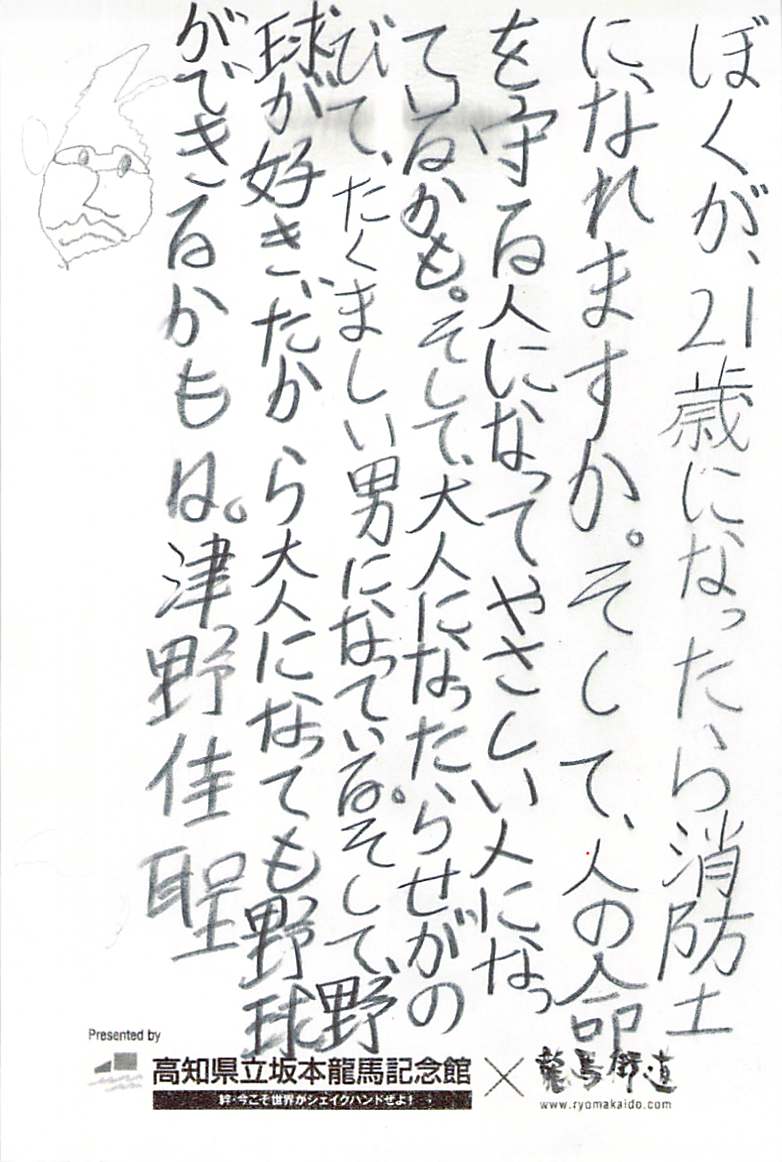 ぼくが、21歳になったら消防士
になれますか。そして、人の命
を守る人になってやさしい人になっ
ているかも。そして、大人になったらせがの
びて、たくましい男になっている。そして、野
球が好き、だから大人になっても野球
ができるかもね。津野佳聖
Presented by
高知県立坂本龍馬記念館
絆・今こそ世界がシェイクハンドぜよ!
×
龍馬街道
www.ryomakaido.com